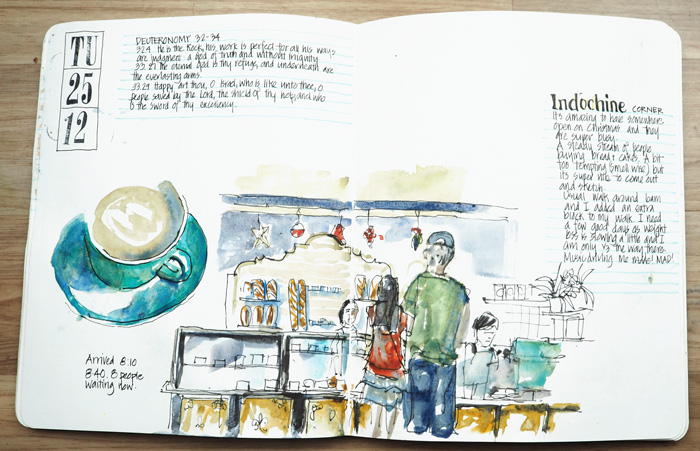 TU
25
12
DEUTERONOMY 32-34
32.4 He is the Rock, his work is perfect for all his ways
are judgment: a God of truth and without iniquity.
33.27 the eternal God is thy refuge, and underneath are
the everlasting arms.
33.29 Happy art thou, O Israel, who is like unto thee, O
people saved by the Lord, the shield of thy help, and who
is the sword of thy excellency.
Indochine CORNER
It's amazing to have somewhere
open on Christmas and they
are super busy.
A steady stream of people
buying bread & cakes. A bit
too tempting (smell wise) but
it's super nice to come out
and sketch.
Usual walk around
and I added an extra
block to my walk. I need
a few good days as weight
loss is slowing a little and I
am only 1/3 the way there.
Music driving me mad! MAD!
Arrived 8:10
8:40. 8 people
waiting now.